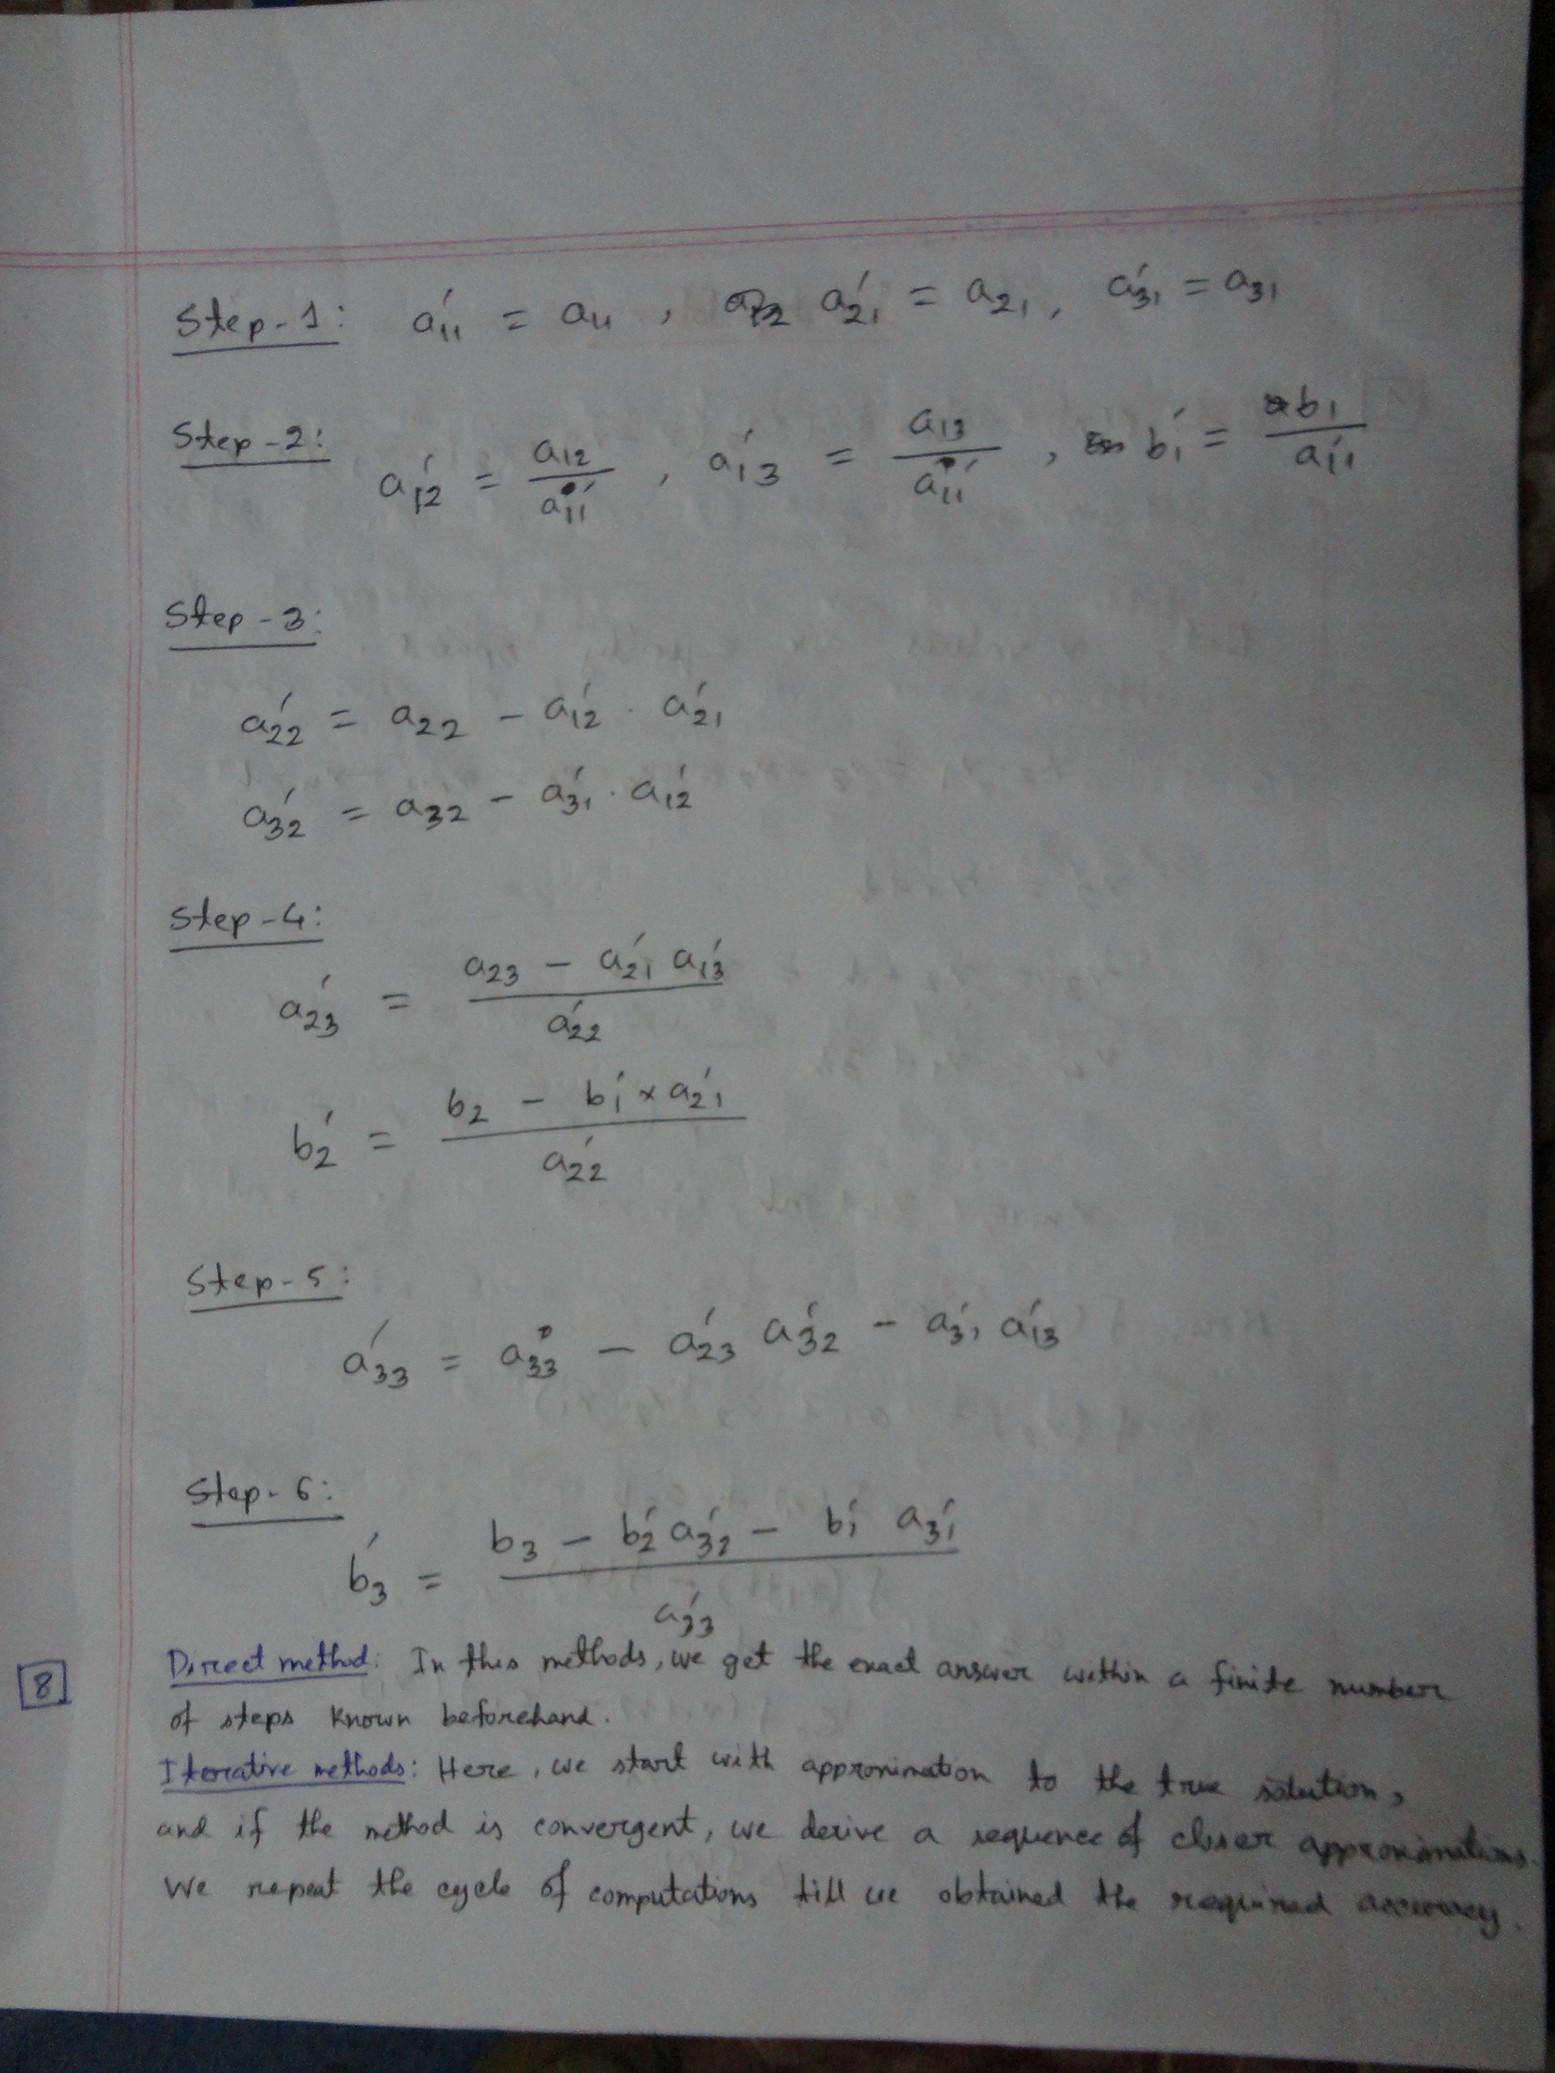 Step-1: a₁₁′ = a₁₁ , a₂₁′ = a₂₁ , a₃₁′ = a₃₁
Step-2: a₁₂′ = a₁₂ / a₁₁′ , a₁₃′ = a₁₃ / a₁₁′ , b₁′ = b₁ / a₁₁′
Step-3:
a₂₂′ = a₂₂ - a₁₂′ · a₂₁′
a₃₂′ = a₃₂ - a₃₁′ · a₁₂′
Step-4:
a₂₃′ = (a₂₃ - a₂₁′ a₁₃′) / a₂₂′
b₂′ = (b₂ - b₁′ × a₂₁′) / a₂₂′
Step-5:
a₃₃′ = a₃₃ - a₂₃′ a₃₂′ - a₃₁′ a₁₃′
Step-6:
b₃′ = (b₃ - b₂′ a₃₂′ - b₁′ a₃₁′) / a₃₃′
8 Direct method: In this methods, we get the exact answer within a finite number
of steps known beforehand.
Iterative methods: Here, we start with approximation to the true solution,
and if the method is convergent, we derive a sequence of closer approximations.
We repeat the cycle of computations till we obtained the required accuracy.